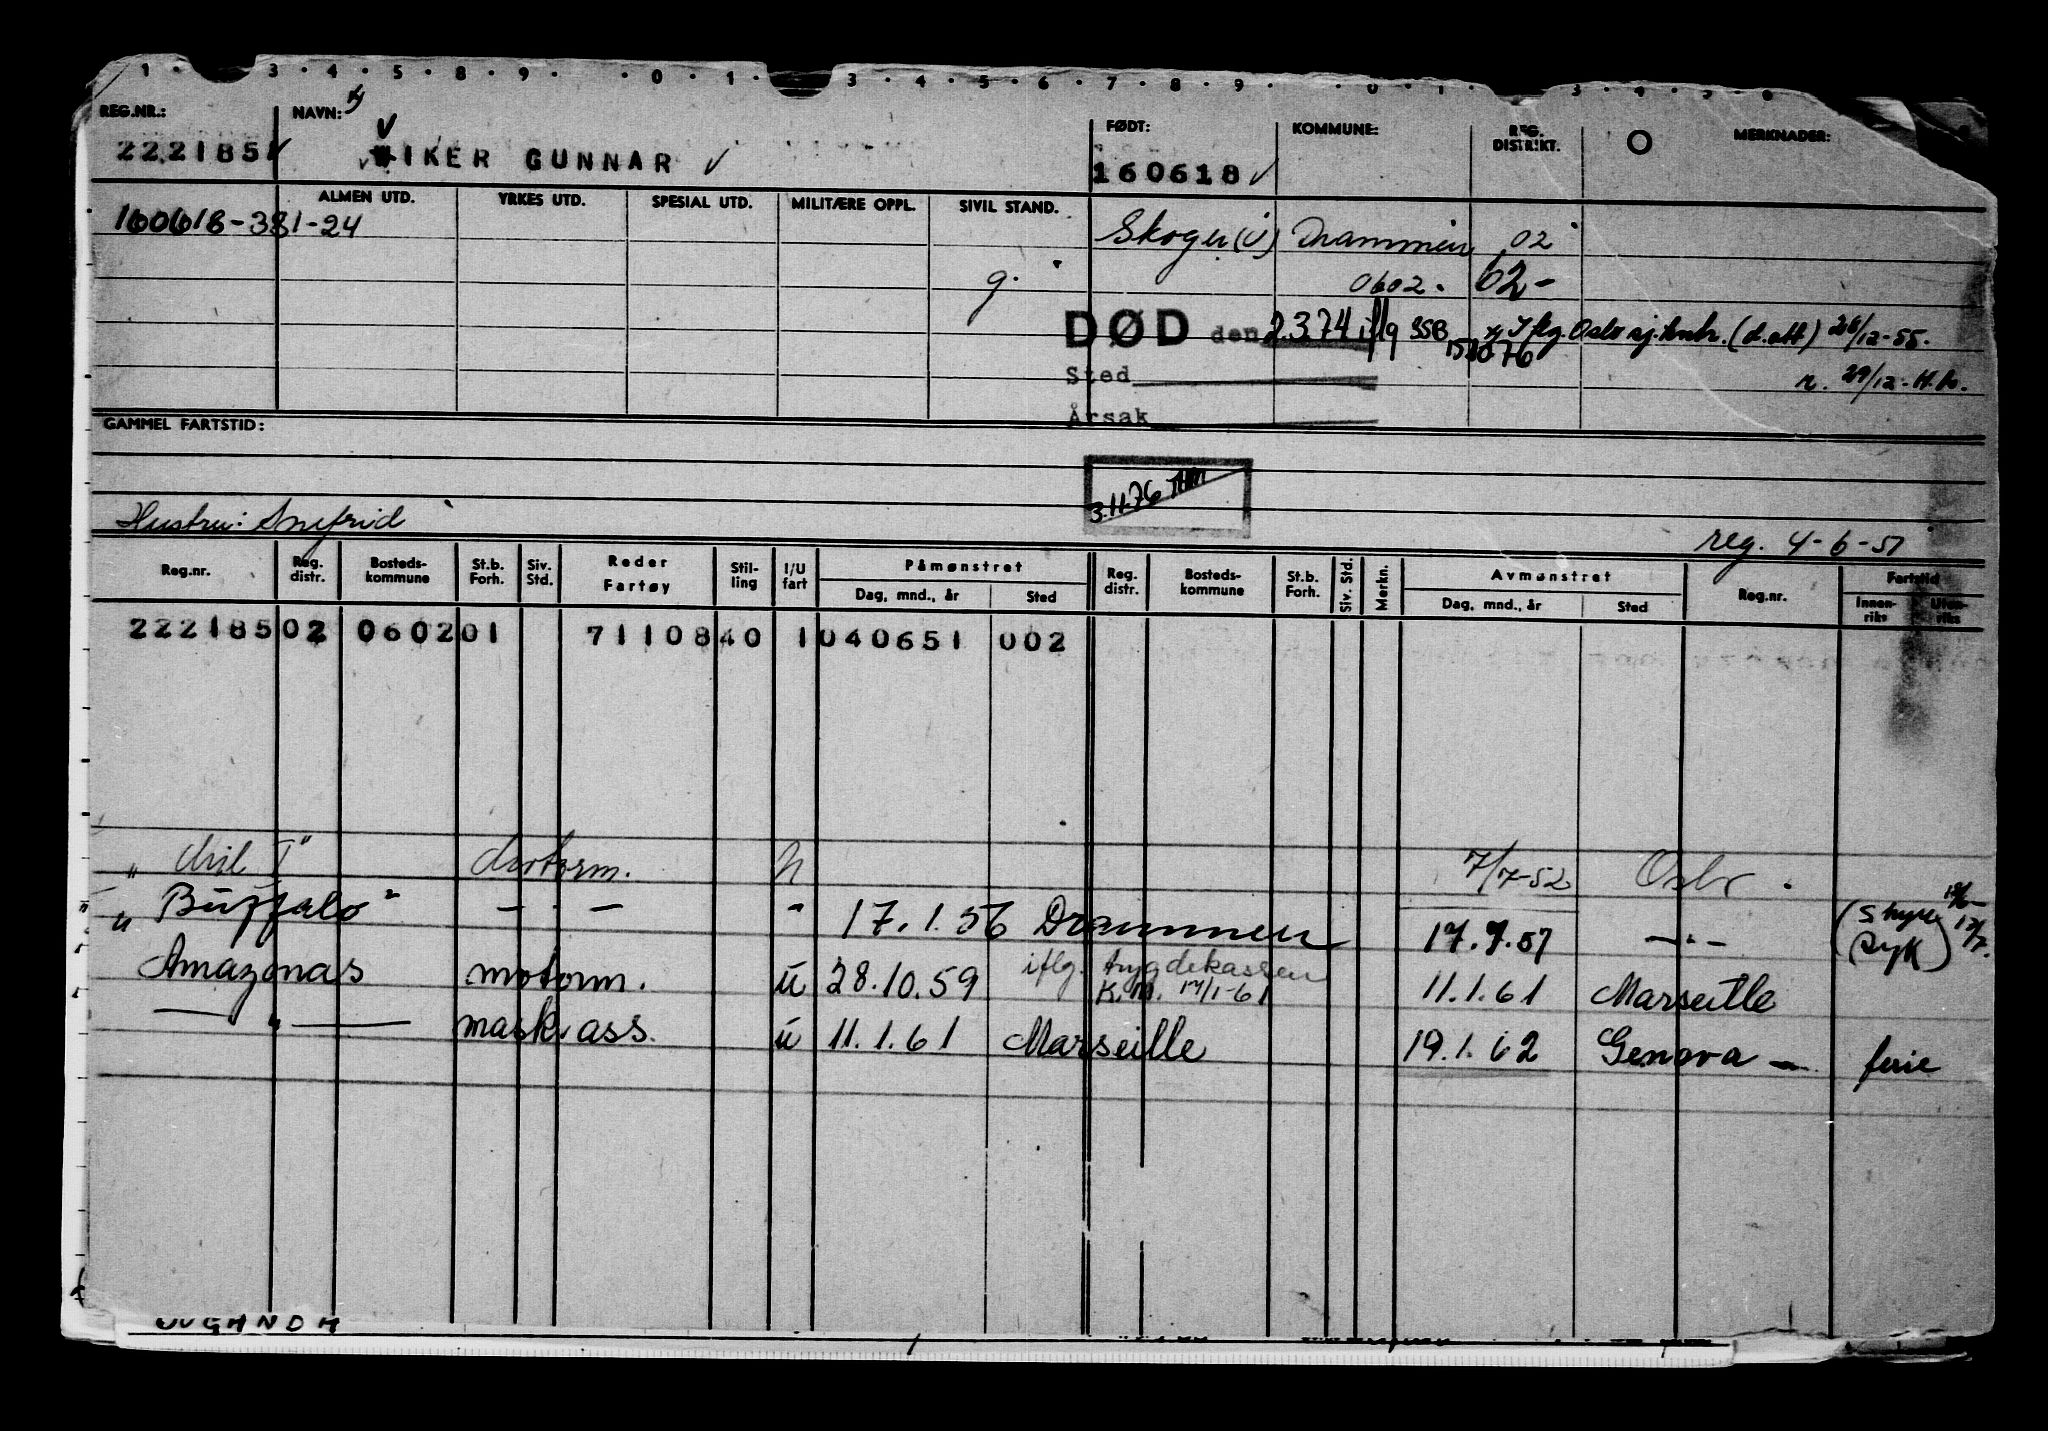 1 · 3 · 4 · 5 · 8 · 9 · · 0 · 1 · 3 · 4 · 5 · 6 · 7 · 8 · 9 · 0 · 1 · 3 · 4 · 5 · 6
REG.NR.: NAVN: FØDT: KOMMUNE: REG. DISTRIKT. MERKNADER:
222185 VIKER GUNNAR 160618
ALMEN UTD. YRKES UTD. SPESIAL UTD. MILITÆRE OPPL. SIVIL STAND.
160618-381-24 Skoger (i) Drammen 02
g. 0602. 02-
DØD den 2.3.74 iflg SSB Iflg. Oslo sj. (d.att) 28/12-55.
Sted r. 29/12-
Årsak
GAMMEL FARTSTID:
3.11.76
Hustru: reg. 4-6-51
Reg.nr. Reg. distr. Bosteds-kommune St.b. Forh. Siv. Std. Reder Fartøy Stil-ling I/U fart Påmønstret Dag, mnd., år Sted Reg. distr. Bosteds-kommune St.b. Forh. Siv. Std. Merkn. Avmønstret Dag, mnd., år Sted Reg.nr. Fartstid Innen-riks Uten-riks
222185 02 0602 01 71108 40 1 040651 002
I" motorm. 7/7-52 Oslo
"Buffalo" — · — " 17.1.56 Drammen 17.7.57 — · — (S hyre 18/6- 17/7.
syk)
Amazonas motorm. u 28.10.59 iflg. trygdekassen K.M. 17/1-61 11.1.61 Marseille
— " — mask.ass. u 11.1.61 Marseille 19.1.62 Genova — ferie